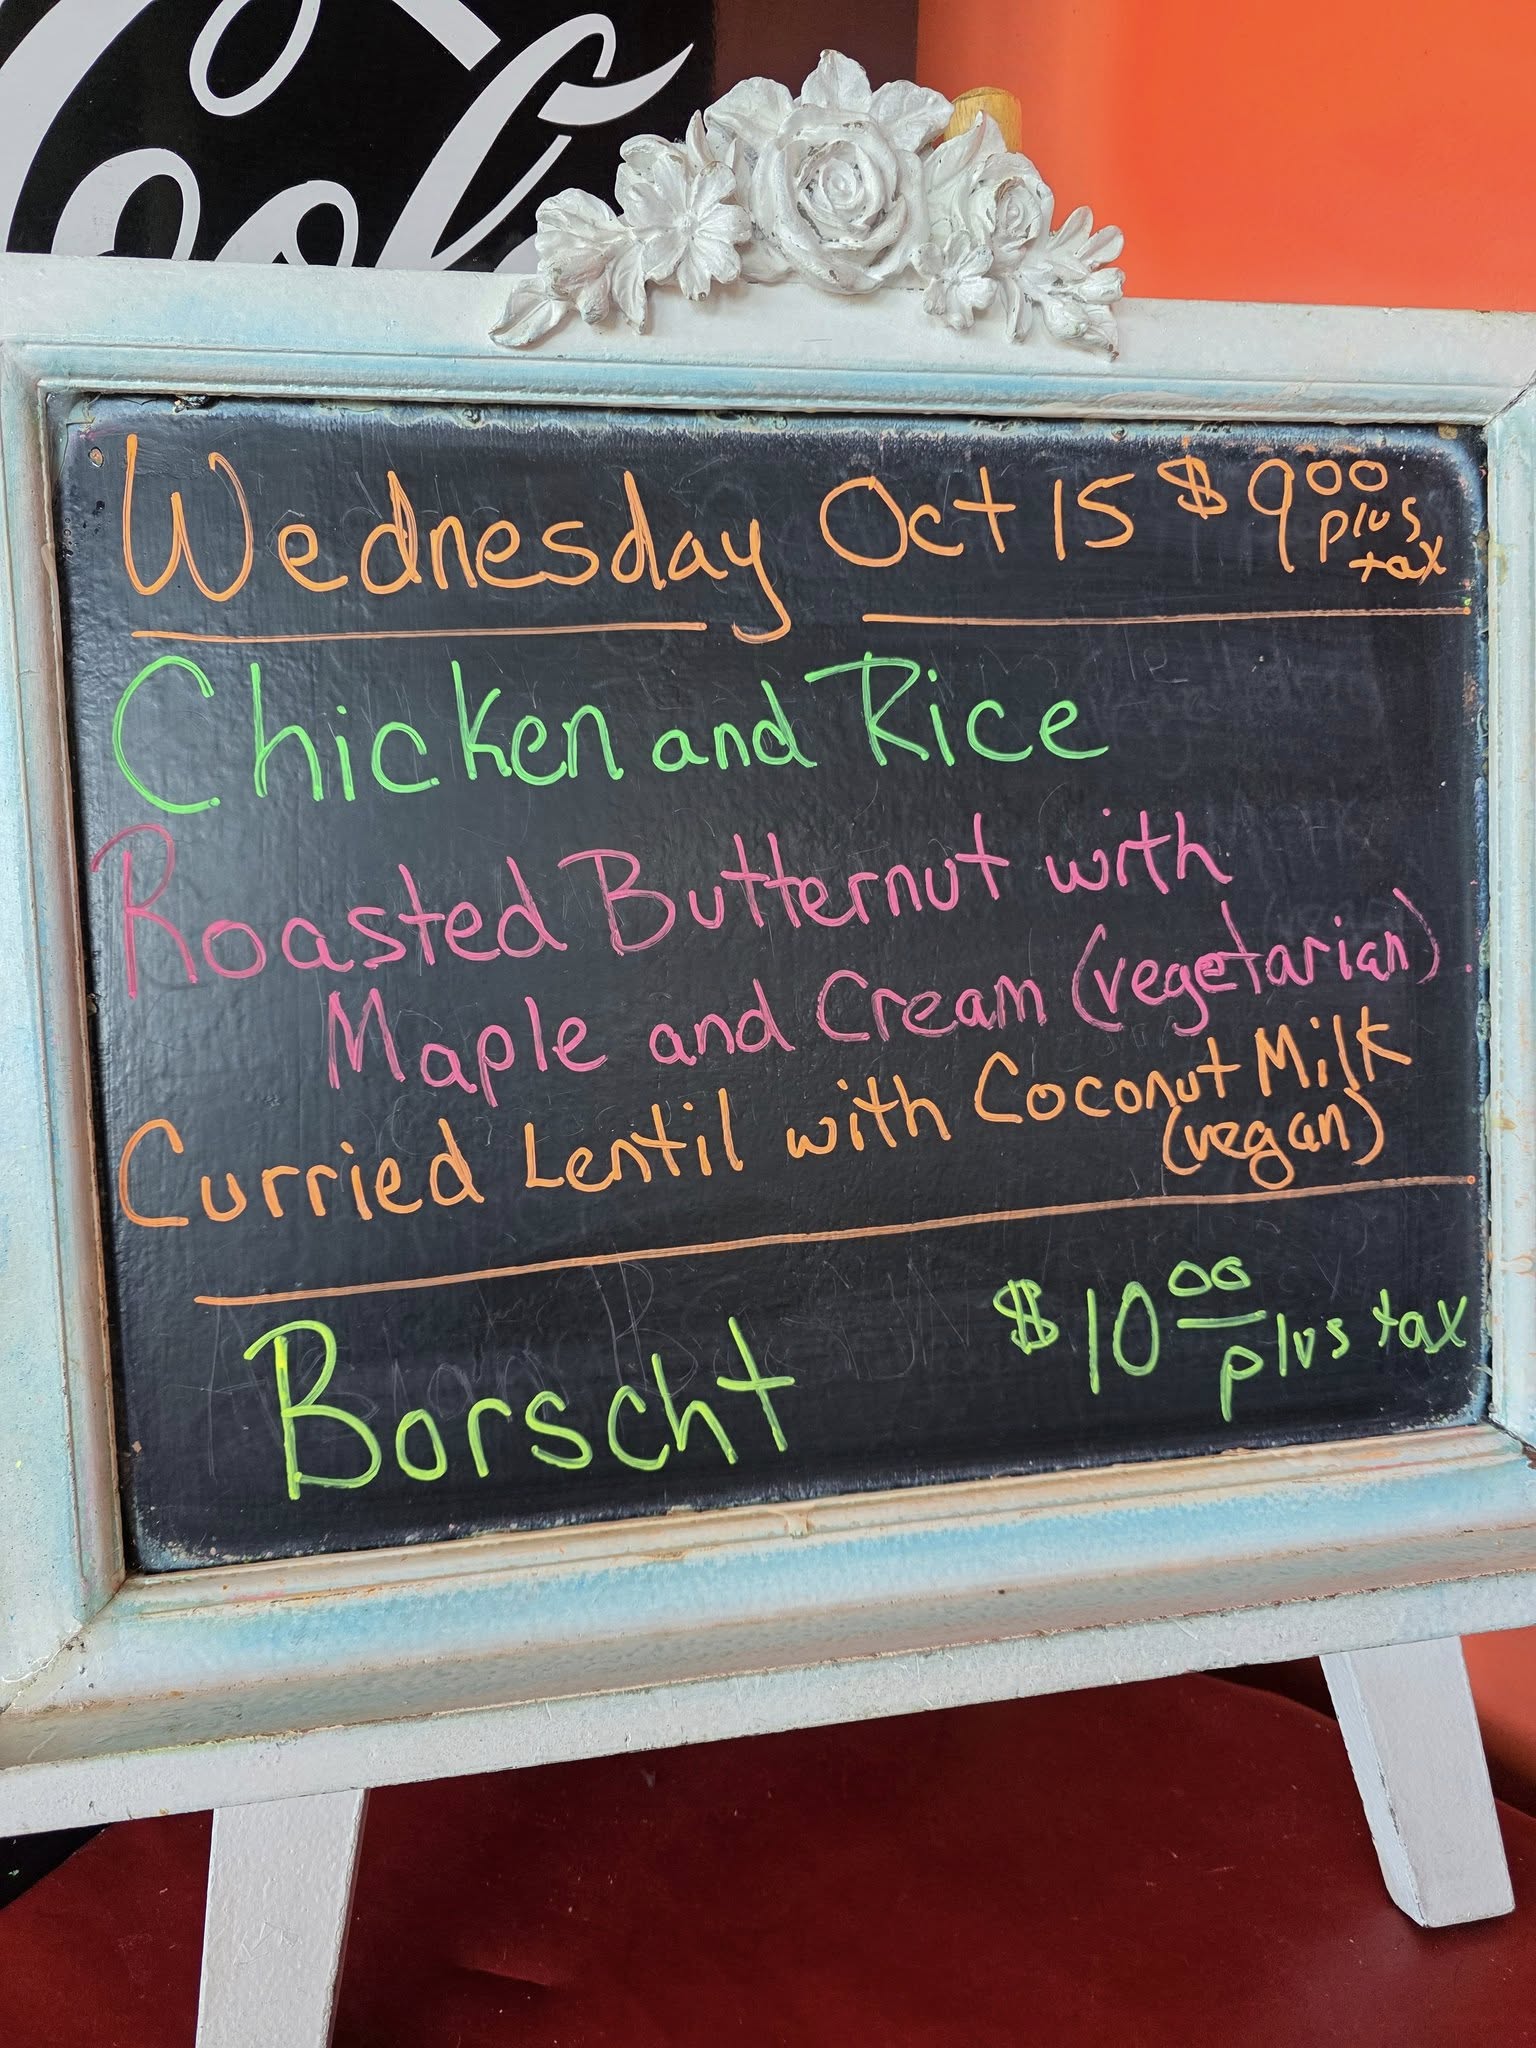 Cola
Wednesday Oct 15 $9.00 plus tax
Chicken and Rice
Roasted Butternut with
Maple and Cream (vegetarian)
Curried Lentil with Coconut Milk
(vegan)
Borscht $10.00 plus tax